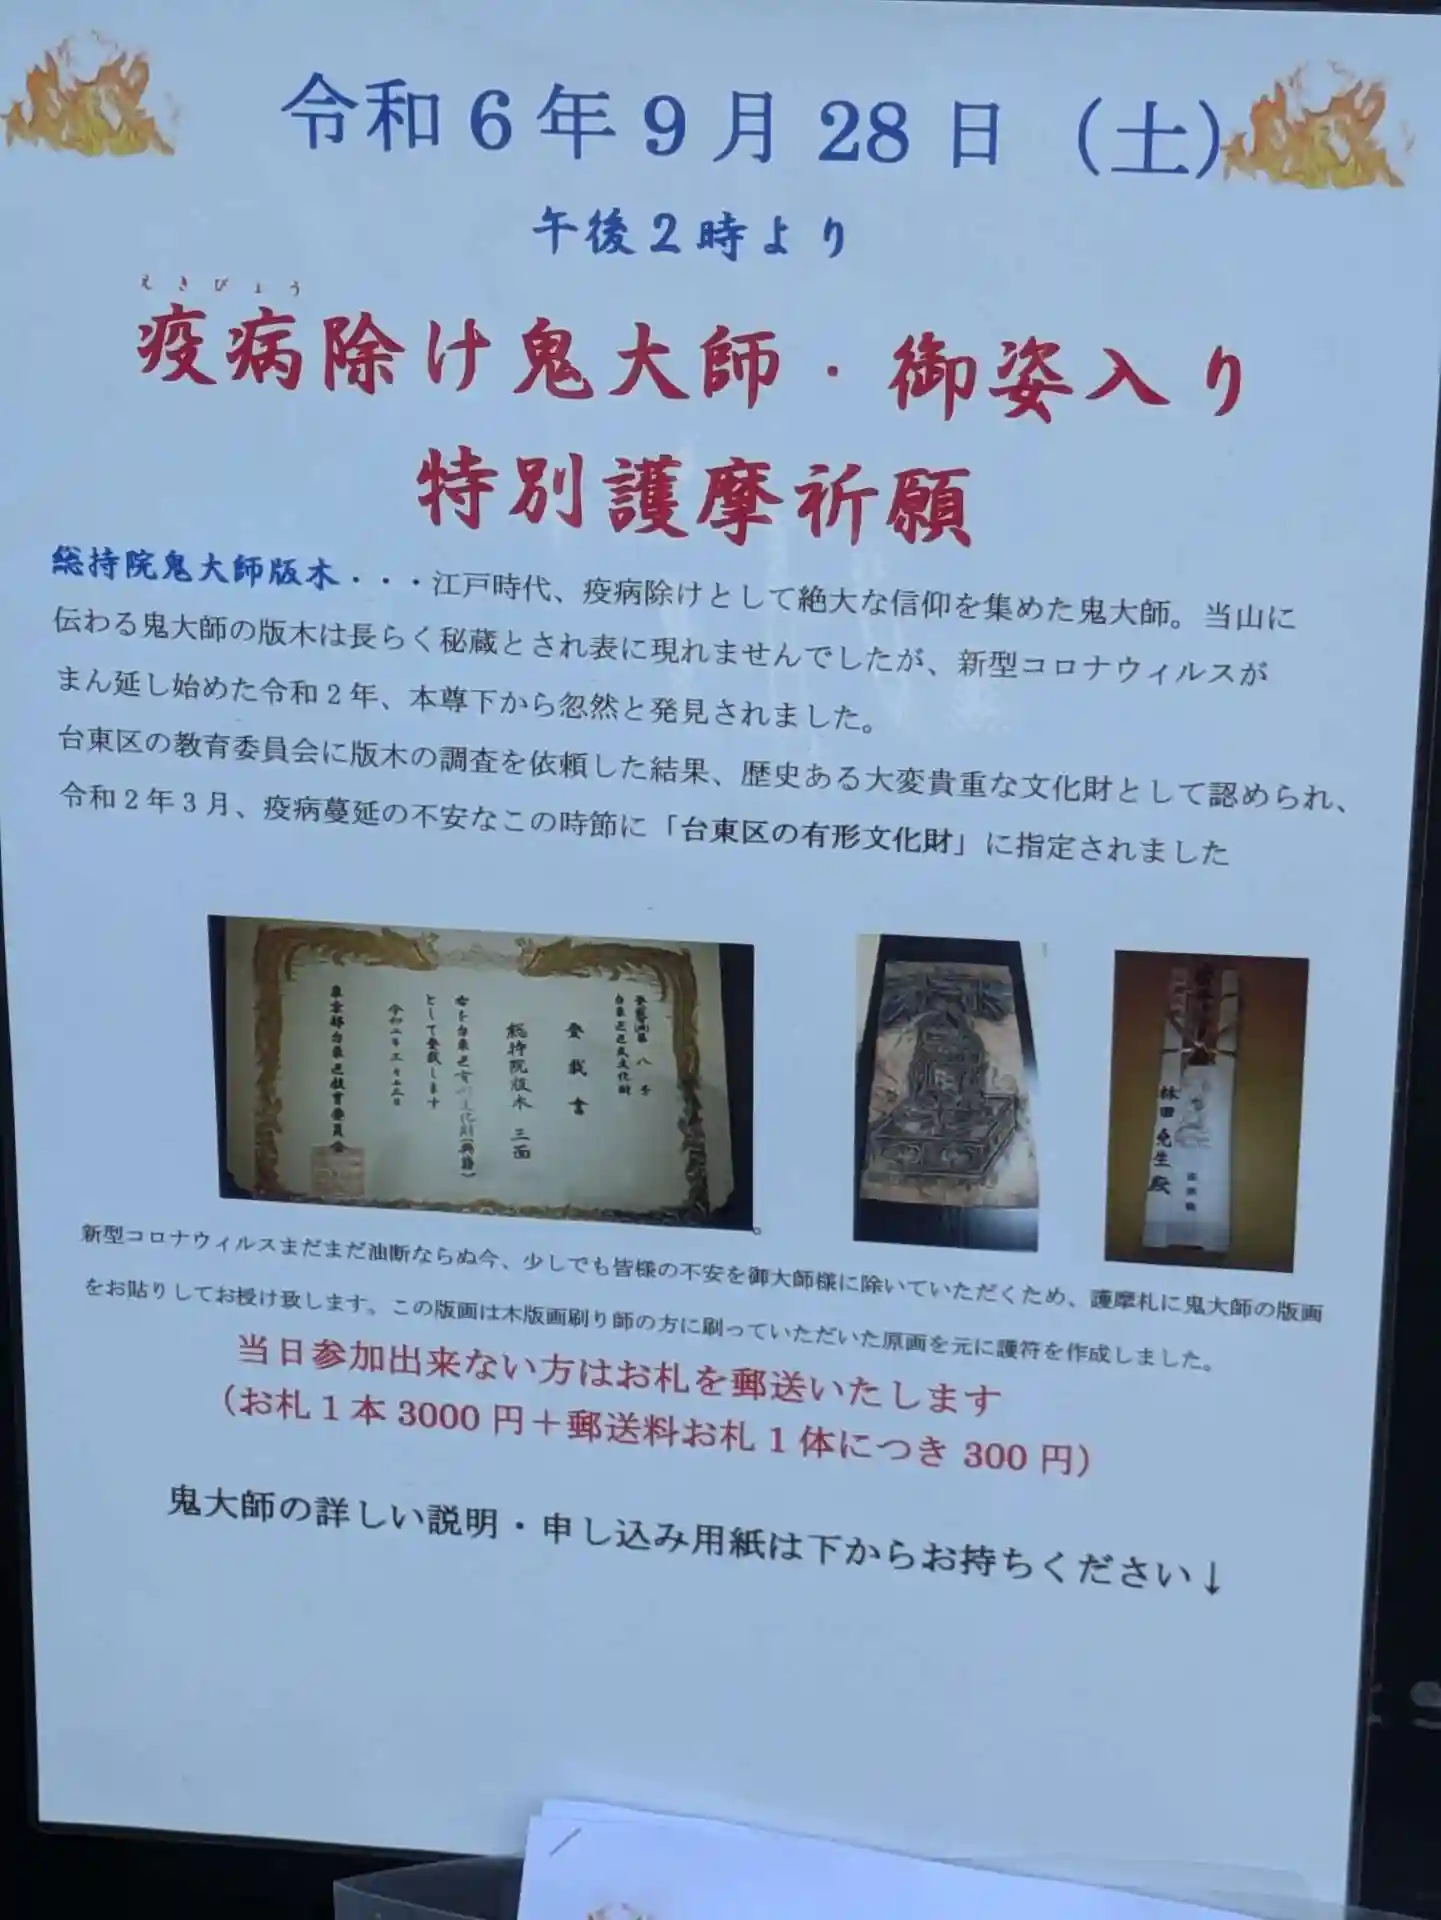 令和6年9月28日（土）
午後2時より
えきびょう
疫病除け鬼大師・御姿入り
特別護摩祈願
総持院鬼大師版木・・・江戸時代、疫病除けとして絶大な信仰を集めた鬼大師。当山に
伝わる鬼大師の版木は長らく秘蔵とされ表に現れませんでしたが、新型コロナウィルスが
まん延し始めた令和2年、本尊下から忽然と発見されました。
台東区の教育委員会に版木の調査を依頼した結果、歴史ある大変貴重な文化財として認められ、
令和2年3月、疫病蔓延の不安なこの時節に「台東区の有形文化財」に指定されました
台東区区民文化財
登載書
総持院版木 三面
右を台東区有形文化財(典籍)
として登載します
東京都台東区教育委員会
林田 免生殿
。
新型コロナウィルスまだまだ油断ならぬ今、少しでも皆様の不安を御大師様に除いていただくため、護摩札に鬼大師の版画
をお貼りしてお授け致します。この版画は木版画刷り師の方に刷っていただいた原画を元に護符を作成しました。
当日参加出来ない方はお札を郵送いたします
（お札1本3000円＋郵送料お札1体につき300円）
鬼大師の詳しい説明・申し込み用紙は下からお持ちください↓